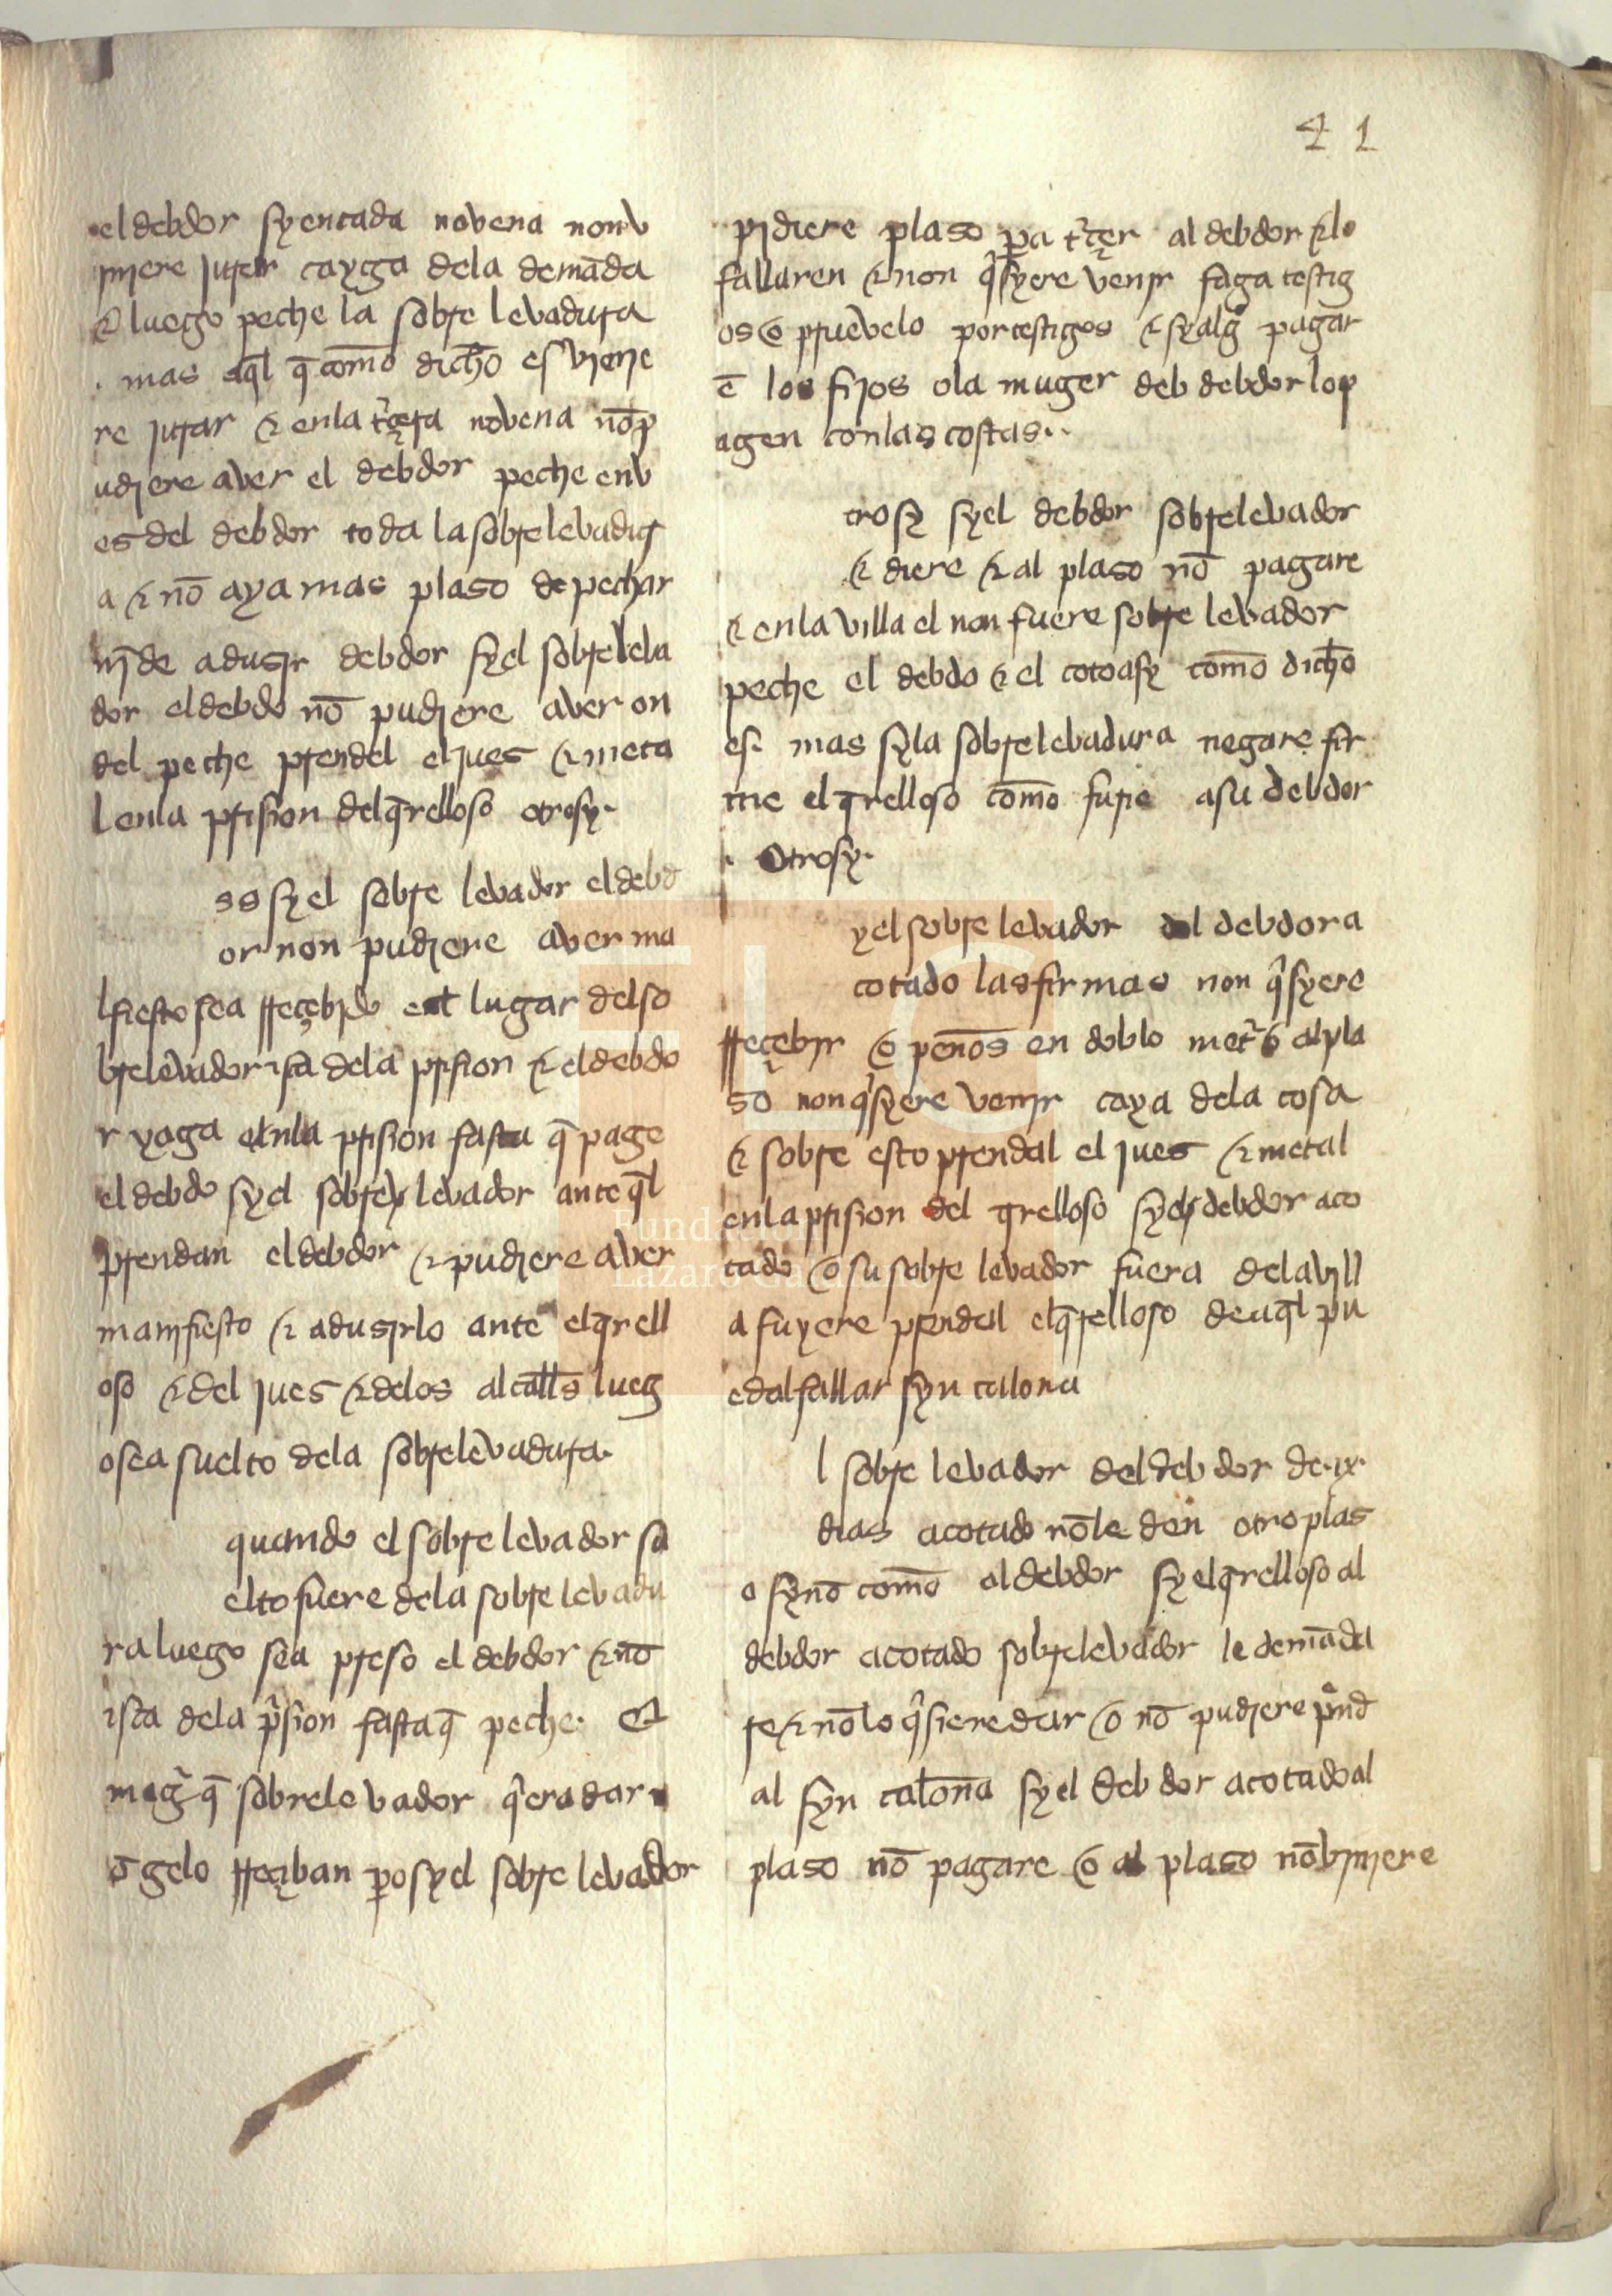 41
el debdor sy en cada novena non v
iniere jurar cayga dela demãda
⁊ luego peche la sobre levadura
. mas aq̃l q̃ como dicho es viẽje
re jurar ⁊ enla t̃çera novena nõ p
udiere aver el debdor peche en v
es del debdor toda la sobrelevadur
a ⁊ nõ aya mas plaso de pechar
nĩ de adusir debdor sy el sobreleva
dor el debdo nõ pudiere aver on
del peche prendel el jues ⁊ meta
l enla prision del q̃relloso otrosy.
ss sy el sobre levador el debd
or non pudiere aver ma
lfiesto sea rreçebido en lugar del so
brelevador isca dela prision ⁊ el debdo
r yaga enla prision fasta q̃ page
el debdo sy el sobre levador ante q̃l
prendan el debdor ⁊ pudiere aver
manifiesto ⁊ adusirlo ante el q̃rell
oso ⁊ del jues ⁊ delos alcall̃s lueg
o sea suelto dela sobrelevadura.
quando el sobre levador su
elto fuere dela sobre levadu
ra luego sea preso el debdor ⁊ nõ
isca dela p̃sion fasta q̃ peche. Et
mag̃ q̃ sobrelevador q̃era dar
õ gelo rreçiban pero sy el sobre levador
pidiere plaso pa t̃çer al debdor ⁊ lo
fallaren ⁊ non q̃syere venir faga testig
os o pruevelo por testigos ⁊ sy alg̃ pagar
ẽ los fijos o la muger deb debdor lo p
agen con las costas..
trosy sy el debdor sobrelevador
⁊ diere ⁊ al plaso nõ pagare
⁊ enla villa el non fuere sobre levador
peche el debdo ⁊ el coto asy como dicho
es. mas sy la sobrelevadura negare fir
me el q̃relloso como furie a su debdor
. Otrosy.
y el sobre levador del debdor a
cotado las firmas non q̃syere
rreçebir o peños en doblo met̃ o al pla
so non q̃syere venir caya dela cosa
⁊ sobre esto prendal el jues ⁊ metal
enla prision del q̃relloso sy el debdor aco
tado o su sobre levador fuera dela vill
a fuyere prendal el q̃relloso de aq̃l pu
edal fallar syn calona
l sobre levador del debdor de .ix.
dias acotado nõ le den otro plas
o synõ como al debdor sy el q̃relloso al
debdor acotado sobrelevador le demãda
re ⁊ nõ lo q̃siere dar o nõ pudiere p̃nd
al syn caloña sy el debdor acotado al
plaso nõ pagare o al plaso nõ viniere